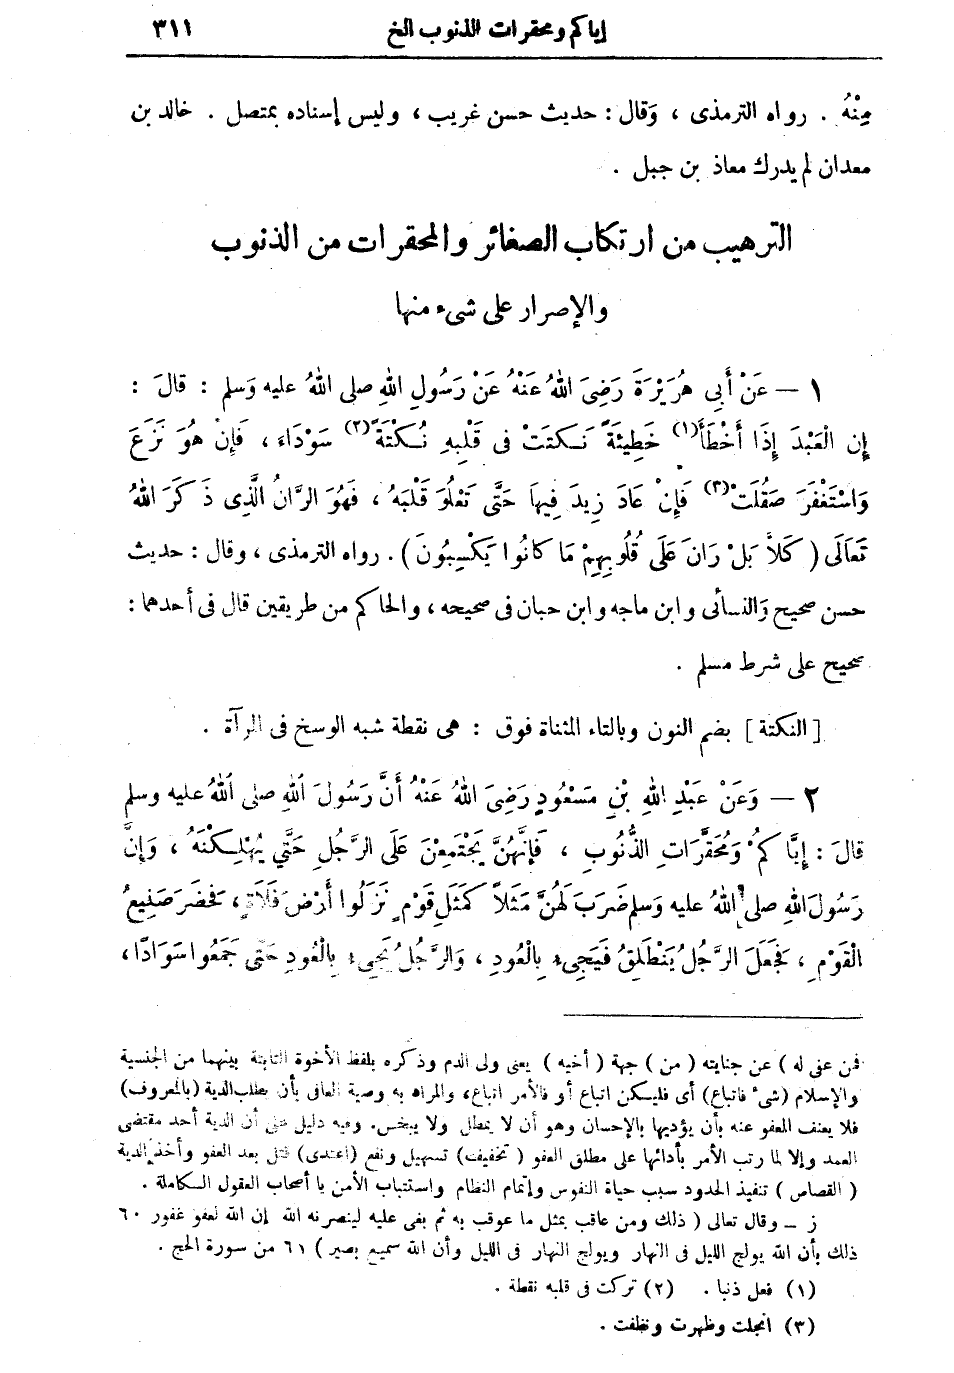 إياكم ومحقرات الذنوب الخ ٣١١
مِنْهُ . رواه الترمذى ، وَقال : حديث حسن غريب ، وليس إسناده بمتصل . خالد بن
معدان لم يدرك معاذ بن جبل .
الترهيب من ارتكاب الصغائر والمحقرات من الذنوب
والإصرار على شىء منها
١ — عَنْ أَبِى هُرَيْرَةَ رَضِىَ اللهُ عَنْهُ عَنْ رَسُولِ اللهِ صلى اللهُ عليه وَسلم : قالَ :
إِن الْعَبْدَ إِذَا أَخْطَأَ(١) خَطِيئَةً نَكَتَتْ فى قَلْبِهِ نُكْتَةً(٢) سَوْدَاءَ ، فَإِنْ هُوَ نَزَعَ
وَاسْتَغْفَرَ صَقُلَتْ(٣) فَإِنْ عَادَ زِيدَ فِيهاَ حَتَّى تَعْلُوَ قَلْبَهُ ، فَهُوَ الرَّانُ الَّذِى ذَكَرَ اللهُ
تَعَالَى ( كَلاَّ بَلْ رَانَ عَلَى قُلُوبِهِمْ مَا كَانُوا يَكْسِبُونَ ) . رواه الترمذى ، وقال : حديث
حسن صحيح وَالنسائى وابن ماجه وابن حبان فى صحيحه ، والحاكم من طريقين قال فى أحدهما :
صحيح على شرط مسلم .
[ النكتة ] بضم النون وبالتاء المثناة فوق : هى نقطة شبه الوسخ فى المرآة .
٢ — وَعَنْ عَبْدِ اللهِ بْنِ مَسْعُودٍ رَضِىَ اللهُ عَنْهُ أَنَّ رَسُولَ اللهِ صلى اللهُ عليه وسلم
قالَ : إِيَّاكُمْ وَمُحَقَّرَاتِ الذُّنُوبِ ، فَإِنَّهُنَّ يَجْتَمِعْنَ عَلَى الرَّجُلِ حَتَّى يُهْلِكْنَهُ ، وَإِنَّ
رَسُولَ اللهِ صلى اللهُ عليه وَسلم ضَرَبَ لَهُنَّ مَثَلاً كَمَثَلِ قَوْمٍ نَزَلُوا أَرْضَ فَلاَةٍ ، فَحَضَرَ صَنِيعُ
الْقَوْمِ ، فَجَعَلَ الرَّجُلُ يَنْطَلِقُ فَيَجِىءُ بِالْعُودِ ، وَالرَّجُلُ يَجِىءُ بِالْعُودِ حَتَّى جَمَعُوا سَوَادًا ،
فمن عفى له ) عن جنايته ( من ) جهة ( أخيه ) يعنى ولى الدم وذكره بلفظ الأخوة الثابتة بينهما من الجنسية
والإسلام (شىء فاتباع) أى فليكن اتباع أو فالأمر اتباع، والمراد به وصية العافى بأن يطلب الدية (بالمعروف)
فلا يعنف المعفو عنه بأن يؤديها بالإحسان وهو أن لا يمطل ولا يبخس. وفيه دليل على أن الدية أحد مقتضى
العمد وإلا لما رتب الأمر بأدائها على مطلق العفو ( تخفيف) تسهيل ونفع (اعتدى) قتل بعد العفو وأخذ الدية
( القصاص ) تنفيذ الحدود سبب حياة النفوس وإتمام النظام واستتباب الأمن يا أصحاب العقول الكاملة .
ز — وقال تعالى ( ذلك ومن عاقب بمثل ما عوقب به ثم بغى عليه لينصرنه الله إن الله لعفو غفور ٦٠
ذلك بأن الله يولج الليل فى النهار ويولج النهار فى الليل وأن الله سميع بصير ) ٦١ من سورة الحج .
(١) فعل ذنبا . (٢) تركت فى قلبه نقطة .
(٣) انجلت وظهرت ونظفت .